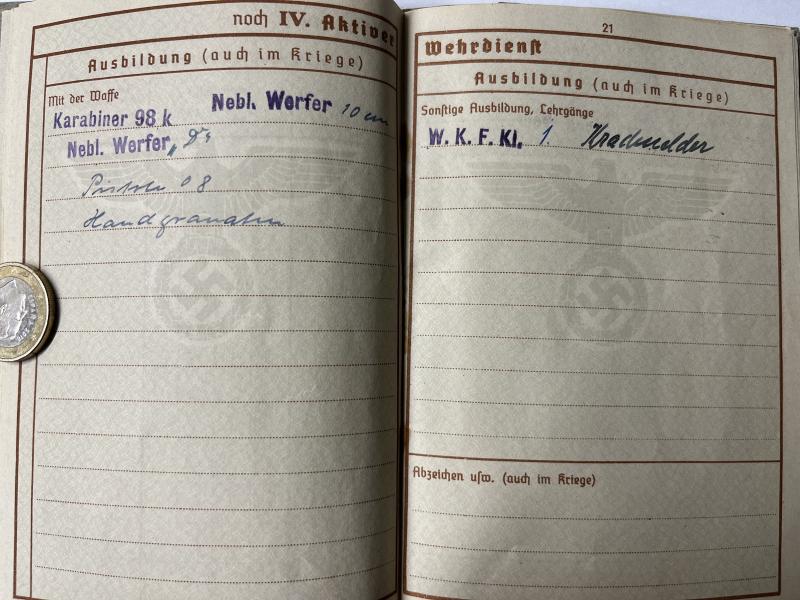 noch IV. Aktiver
Ausbildung (auch im Kriege)
Mit der Waffe
Karabiner 98 k Nebl. Werfer 10 cm
Nebl. Werfer „D“
Pistole 08
Handgranaten
21
Wehrdienst
Ausbildung (auch im Kriege)
Sonstige Ausbildung, Lehrgänge
W. K. F. Kl. 1. Kradmelder
Abzeichen usw. (auch im Kriege)